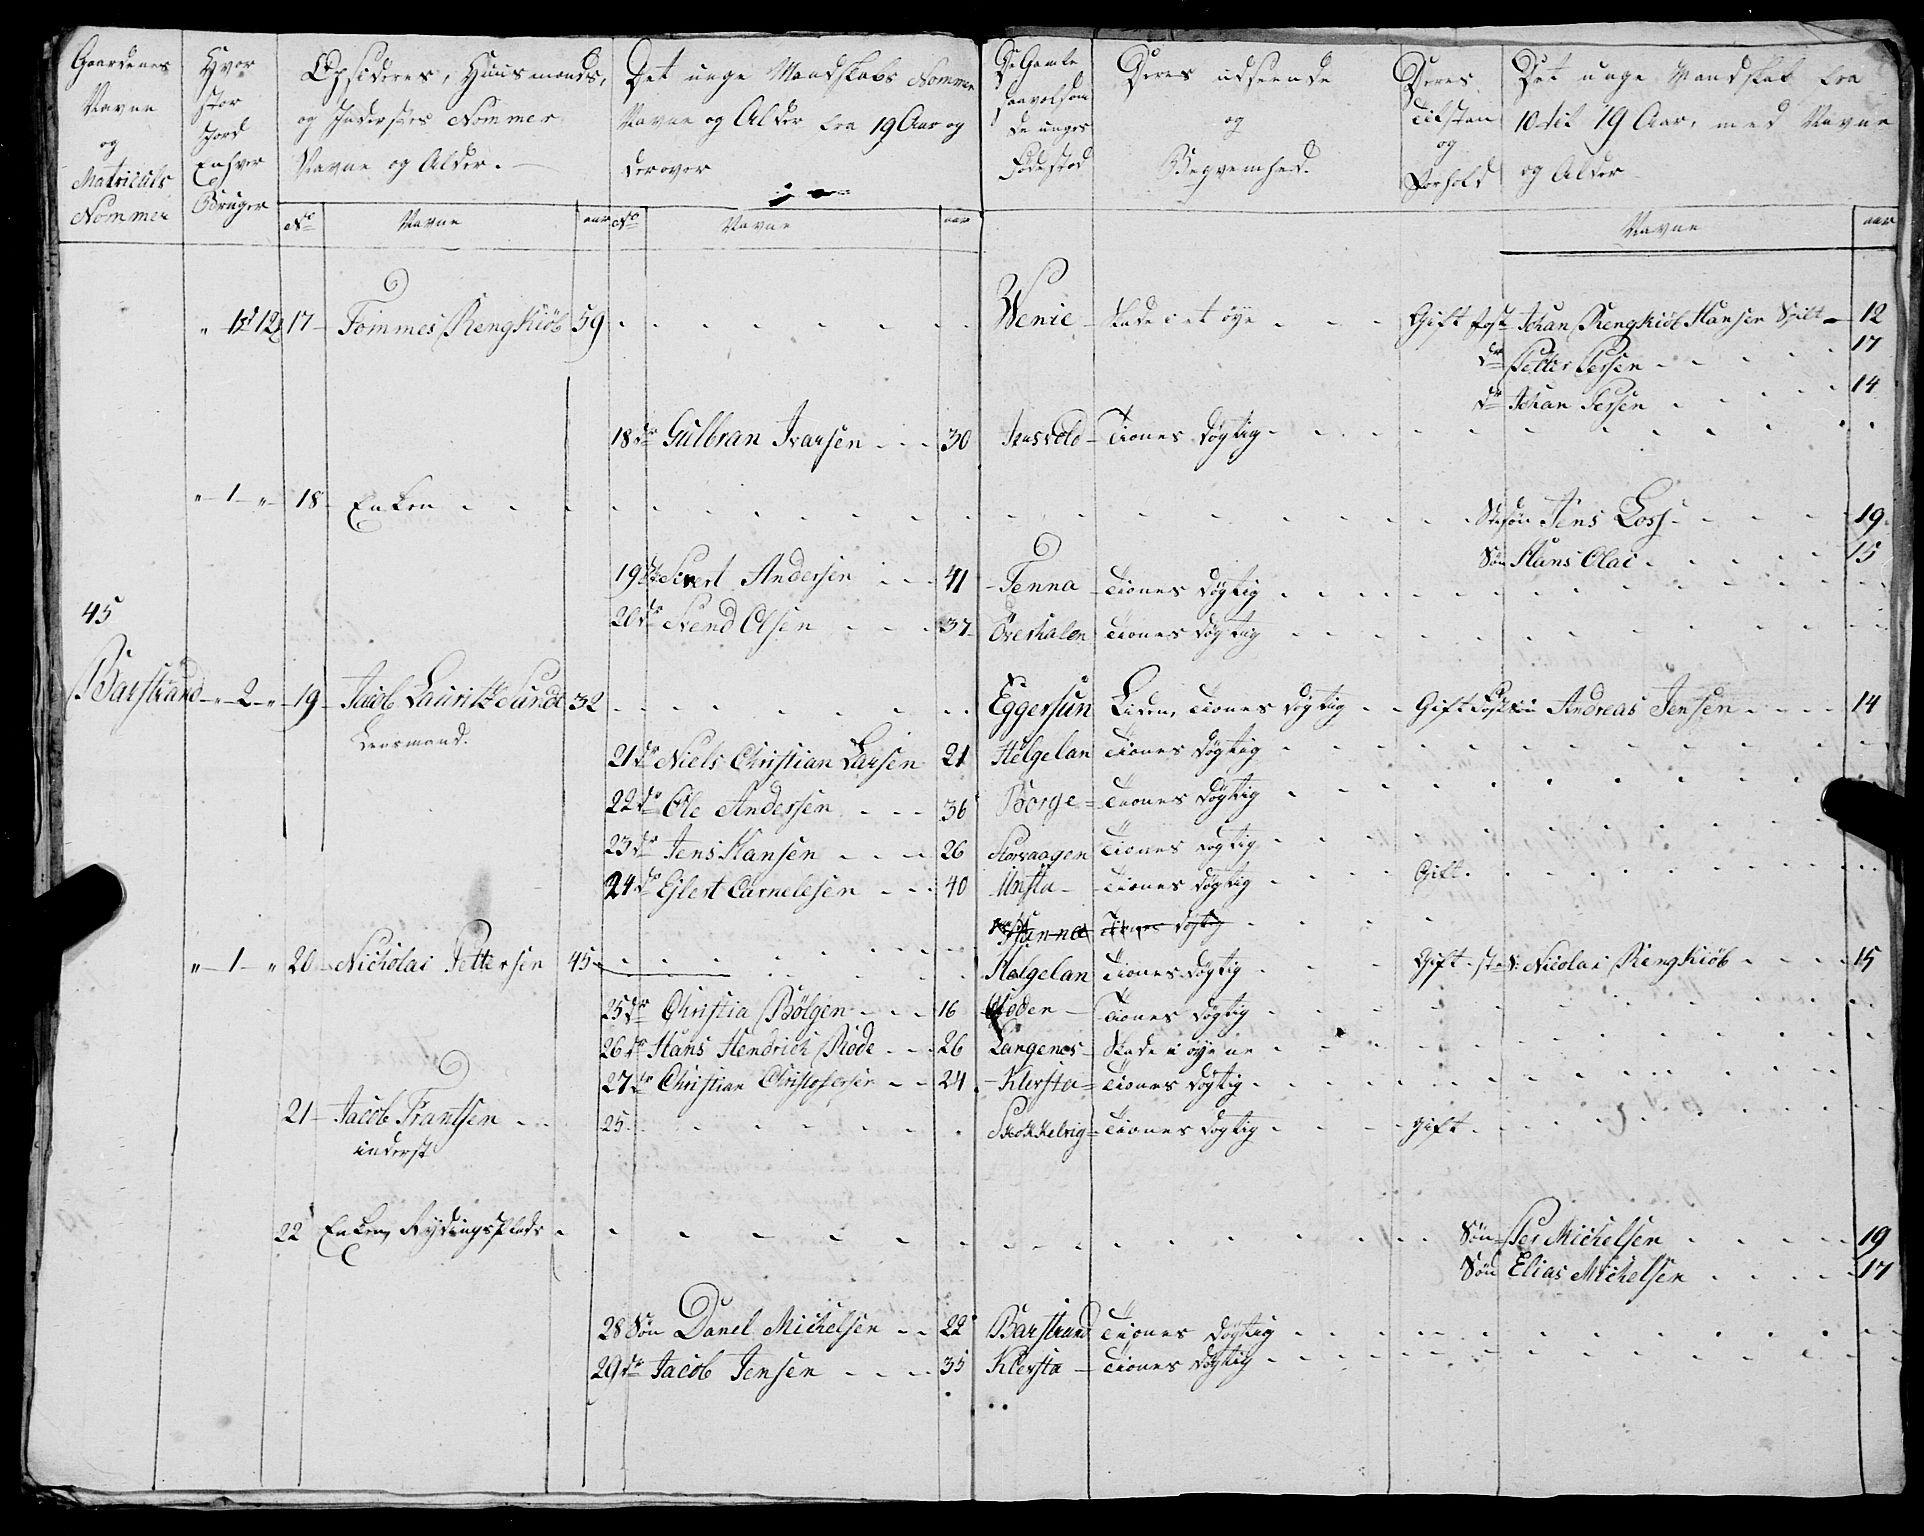 Gaardenes Navne og Matriculs Nommer
Hvor stor Jord Enhver Bruger
Opsideres, Huusmænds, og Indersters Nommer Navne og Alder.
Det unge Mandskabs Nommer Navne og Alder fra 19 Aar og derover
De Gamle saavelsom de unges Fødestæd
Deres udseende og Beqvemhed.
Deres Tilstan og Forhold
Det unge Mandskab fra 10 til 19 Aar, med Navne og Alder
No Navne aar No Navne aar Navne aar
17 Tommes Rengkiöb 59 Wenie Skade i et øye Gift Johan Rengkiöb Hansen 12
do Petter Persen 17
do Johan Persen 14
18 do Gulbran Ivarsen 30 Tienes dögtig
" 1 " 18 Enken Stesøn Jens Loss 19
Søn Hans Olai 15
19 Sivert Andersen 41 Tenna Tienes dögtig
45
20 do Svend Olsen 37 Överhalen Tienes dögtig
Barstrand " 2 " 19 Jacob Lauritz Sunde 32 Eggersun Liden, Tienes dögtig Gift Andreas Jensen 14
Lensmand.
21 do Niels Christian Larsen 21 Helgelan Tienes dögtig
22 do Ole Andersen 36 Borge Tienes dögtig
23 do Jens Hansen 26 Storvaagen Tienes dögtig
24 do Ejlert Cornelesen 40 Unsta Tienes dögtig Gift
" 1 " 20 Nicholai Pettersen 45 Helgelan Tienes dögtig Gift Nicolai Rengkiöb 15
25 do Christia Bölgen 16 Tienes dögtig
26 do Hans Hendrich Rode 26 Langenes Skade i øyene
27 do Christian Christofersen 24 Klersta Tienes dögtig
21 Jacob Frantsen 25 Skokkelvig Tienes dögtig Gift
inderst
22 Enken Rydingsplads Søn Per Michelsen 19
Søn Elias Michelsen 17
28 Søn Danel Michelsen 22 Barstrand Tienes dögtig
29 do Jacob Jensen 35 Klersta Tienes dögtig